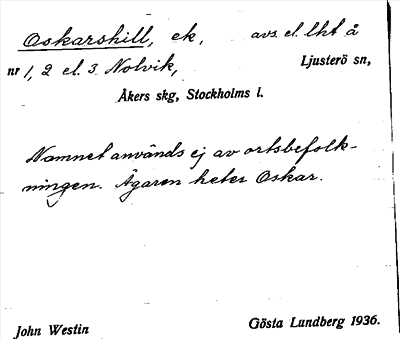 Oskarshill, ek, avs. el. lht å
nr 1, 2 el. 3 Nolvik, Ljusterö sn,
Åkers skg, Stockholms l.
Namnet används ej av ortsbefolk-
ningen. Ägaren heter Oskar.
John Westin Gösta Lundberg 1936.